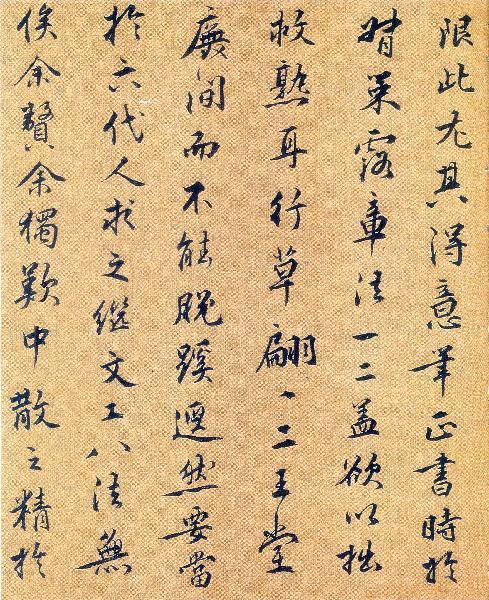 限此尤其得意筆正書時於
策露章法一二蓋欲以拙
救熟耳行草翩、二王堂
廡間而不能脫蹊逕然要當
於六代人求之継文工八法無
俟余贊余獨歎中散之精於